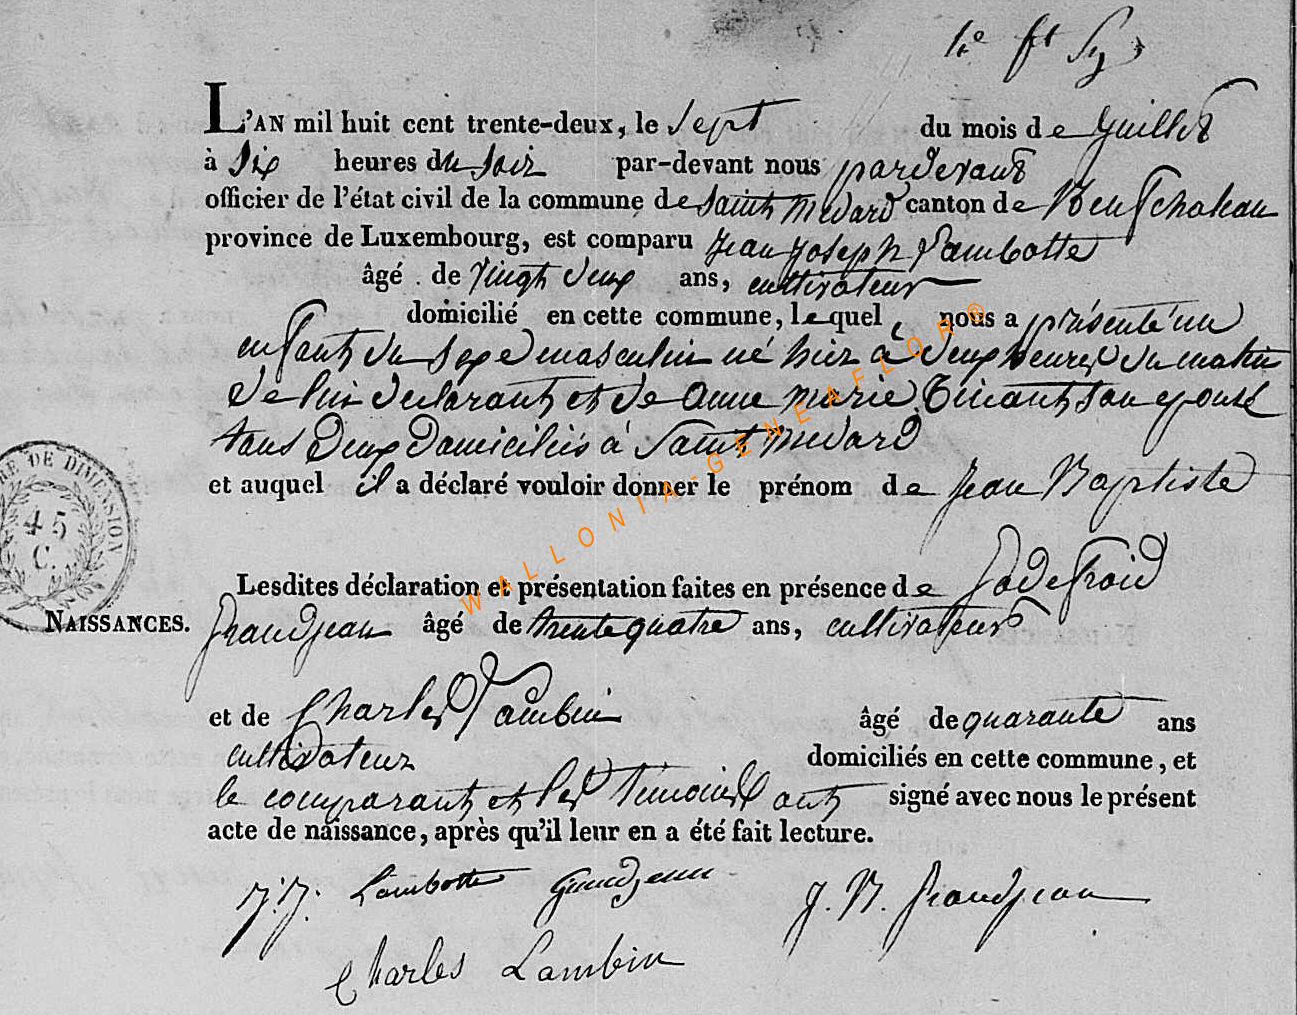 1er ft
L'AN mil huit cent trente-deux, le Sept du mois de Juillet
à Six heures du soir par-devant nous pardevant
officier de l'état civil de la commune de Saint Medard canton de Neufchateau
province de Luxembourg, est comparu Jean Joseph Lambotte
âgé de vingt deux ans, cultivateur
domicilié en cette commune, lequel nous a présenté un
enfant du sexe masculin né hier à deux heures du matin
de lui declarant et de anne marie Tinant son epouse
tous deux domiciliés à Saint Medard
et auquel il a déclaré vouloir donner le prénom de Jean Baptiste
RE DE DIMENSION
45
C.
Lesdites déclaration et présentation faites en présence de Godefroid
NAISSANCES.
Grandjean âgé de trente quatre ans, cultivateur
et de Charles Lambin âgé de quarante ans
cultivateur domiciliés en cette commune, et
le comparant et les témoins ont signé avec nous le présent
acte de naissance, après qu'il leur en a été fait lecture.
J. J. Lambotte Grandjean J. N. Grandjean
Charles Lambin
WALLONIA-GENEAFLOR®